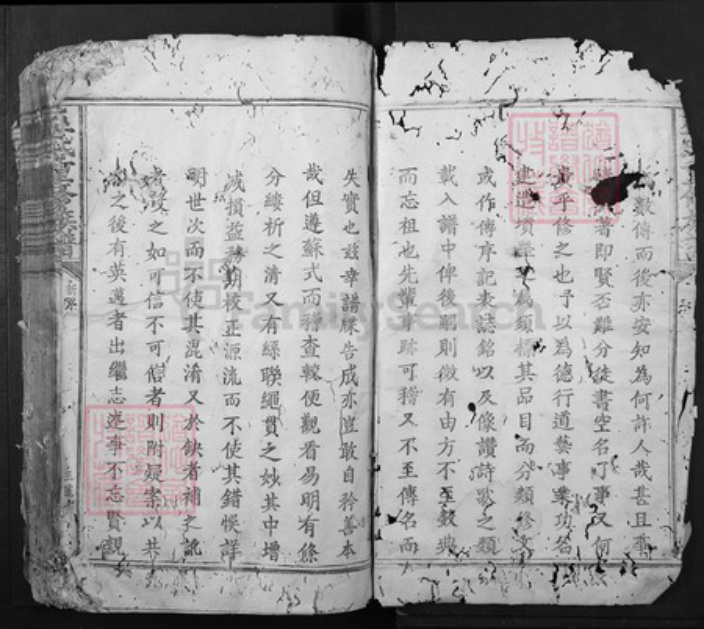 數傳而後亦安知為何許人哉甚且
著即賢否難分徒書空名丁事又何
乎修之也予以為德行道藝事業功名
為須標其品目而分類修文
或作傳序記表誌銘以及像讚詩歌之類
載入譜中俾後嗣則傚有由方不至數典
而忘祖也先輩事跡可稽又不至傳名而
失實也茲幸譜牒告成亦豈敢自矜善本
哉但遵蘇式而稽查較便觀看易明有條
分縷析之清又有絲聯繩貫之妙其中增
減損益務期校正源流而不使其錯悞詳
明世次而不使其混淆又於缺者補之訛
之如可信不可信者則附疑案以共
之後有英邁者出繼志述事不忘賢親
氏重修族譜
FamilySearch